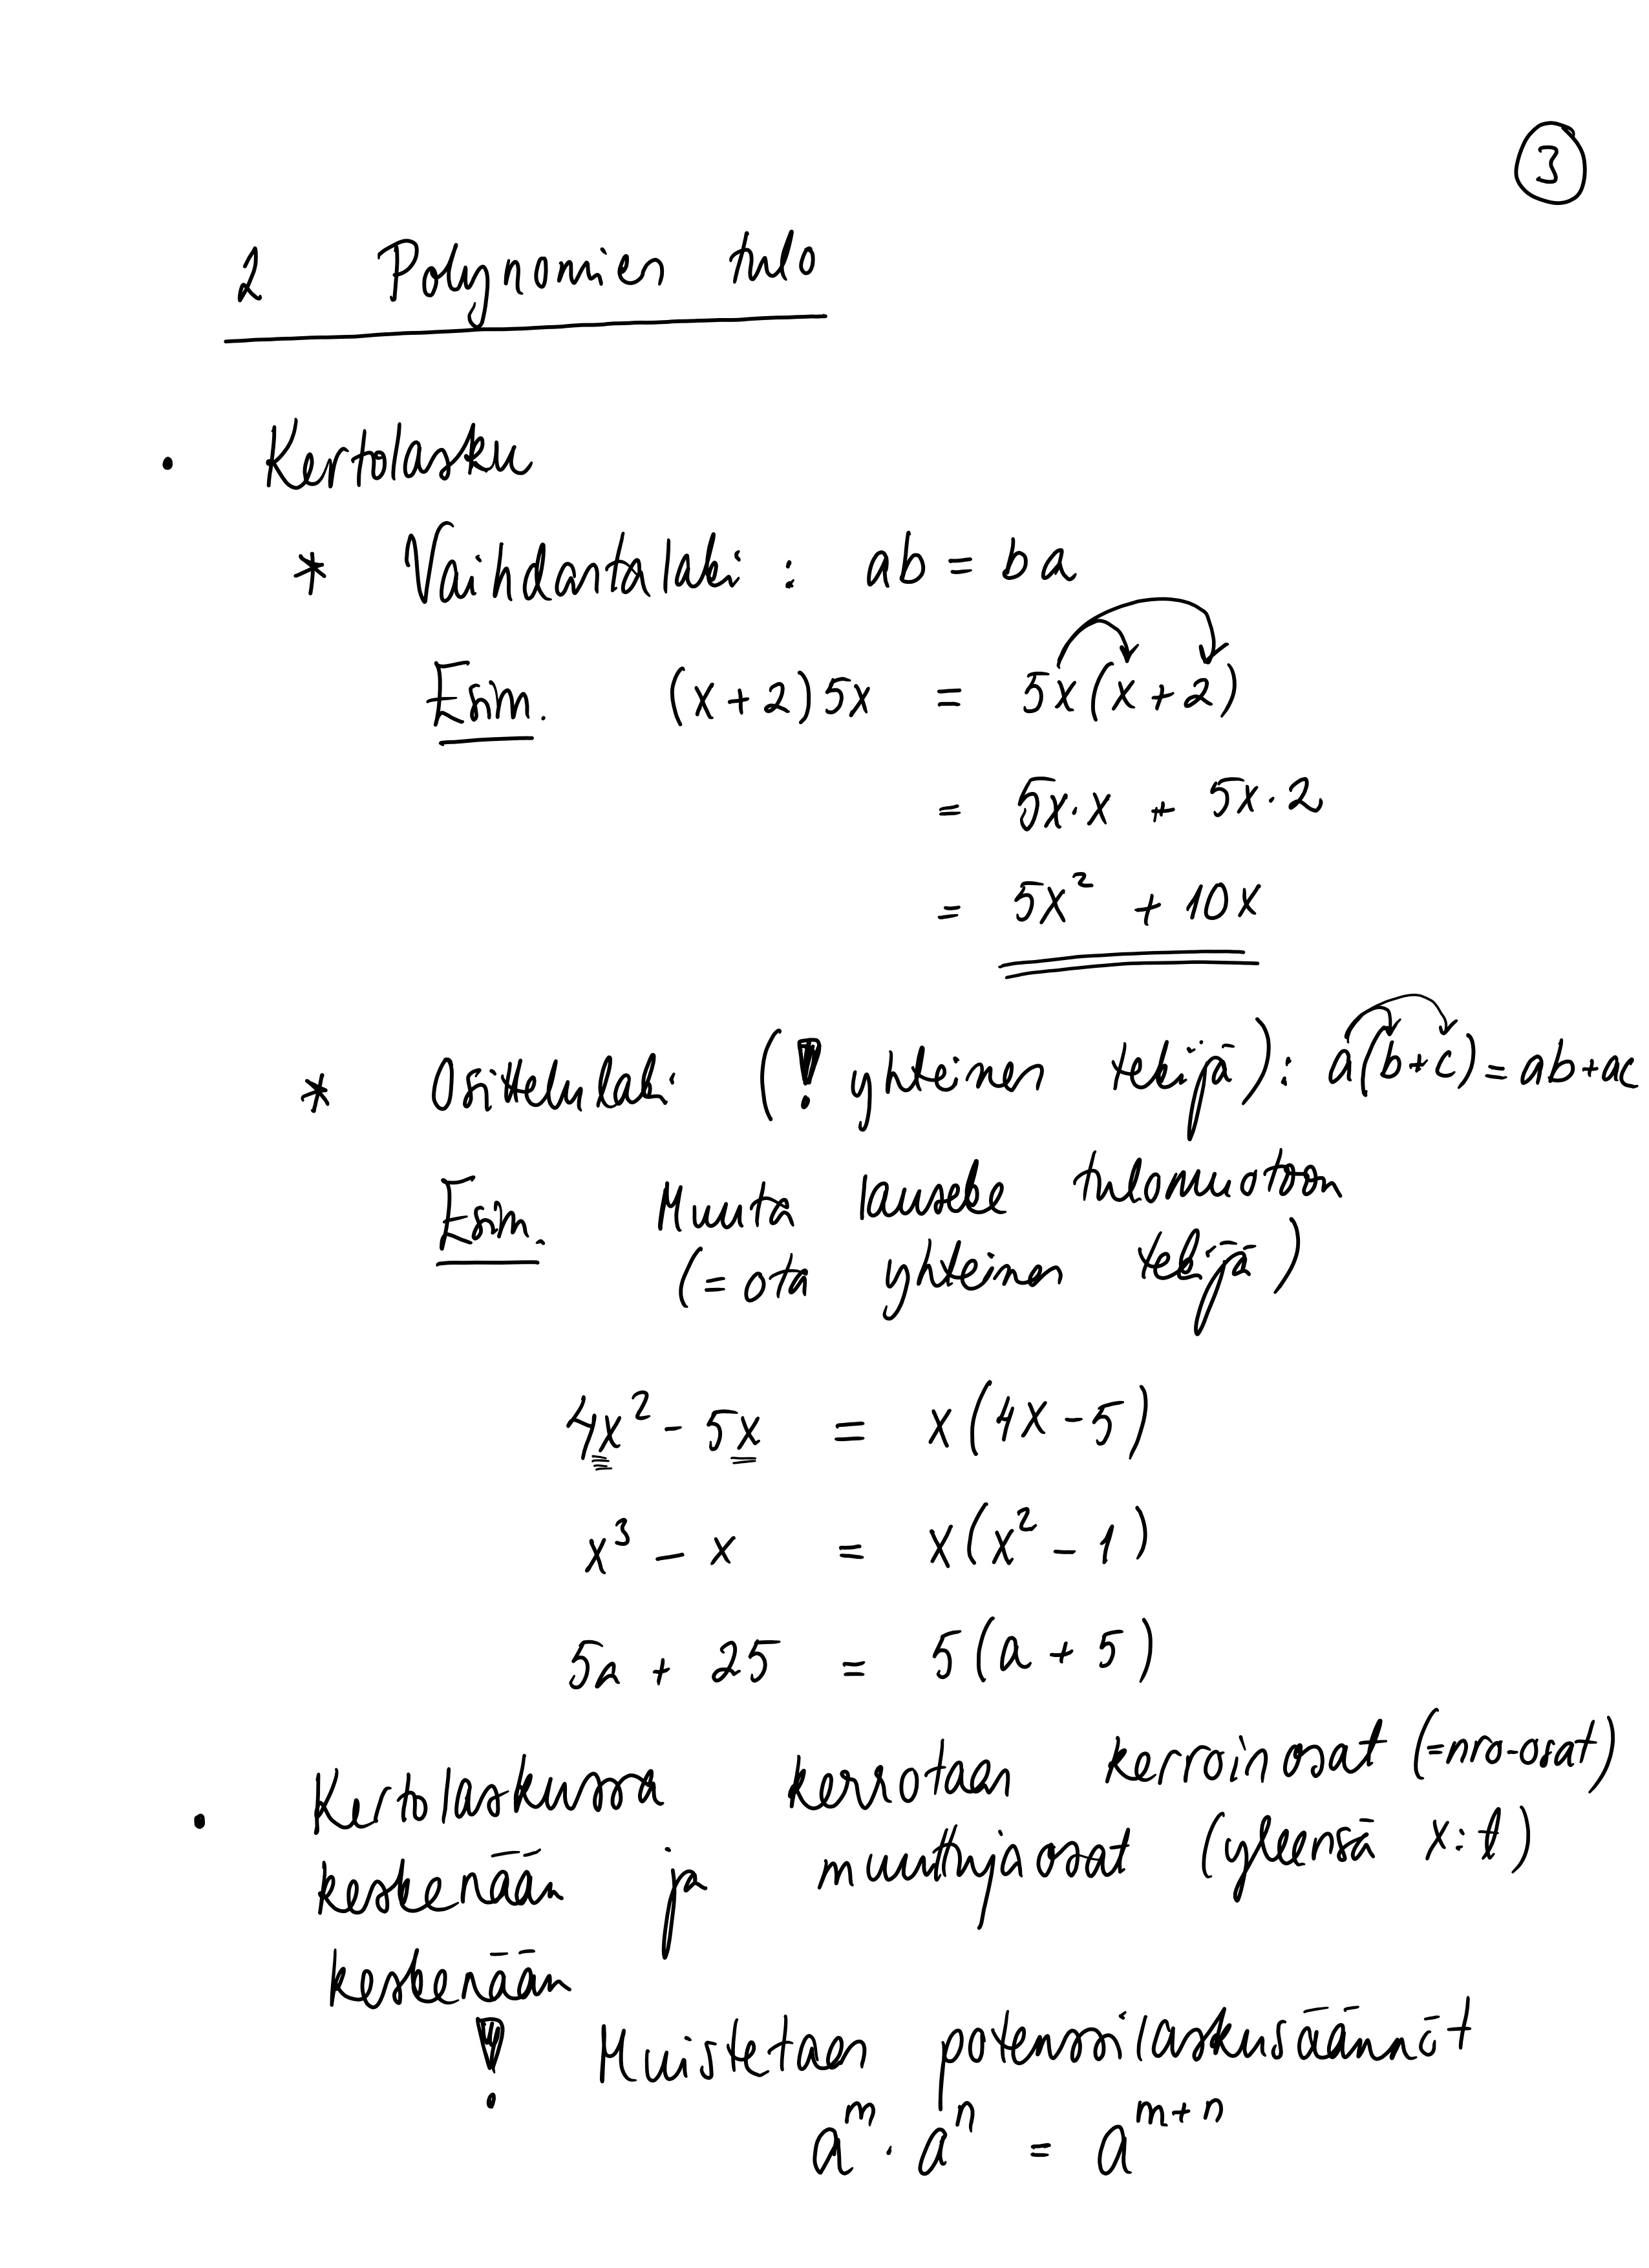 3
2 Polynomien tulo
• Kertolasku
* Vaihdantalaki : ab = ba
Esim. (x + 2) 5x = 5x (x + 2)
= 5x · x + 5x · 2
= 5x² + 10x
* Osittelulaki (! yhteinen tekijä) : a(b+c) = ab+ac
Esim. Muuta lauseke tulomuotoon
(= ota yhteinen tekijä)
4x² - 5x = x(4x - 5)
x³ - x = x(x² - 1)
5a + 25 = 5(a + 5)
• Kertolaskussa kerrotaan kerroinosat (=nro-osat)
keskenään ja muuttujaosat (yleensä x:t)
keskenään
! Muistetaan potenssilaskusäännöt
aᵐ · aⁿ = aᵐ⁺ⁿ